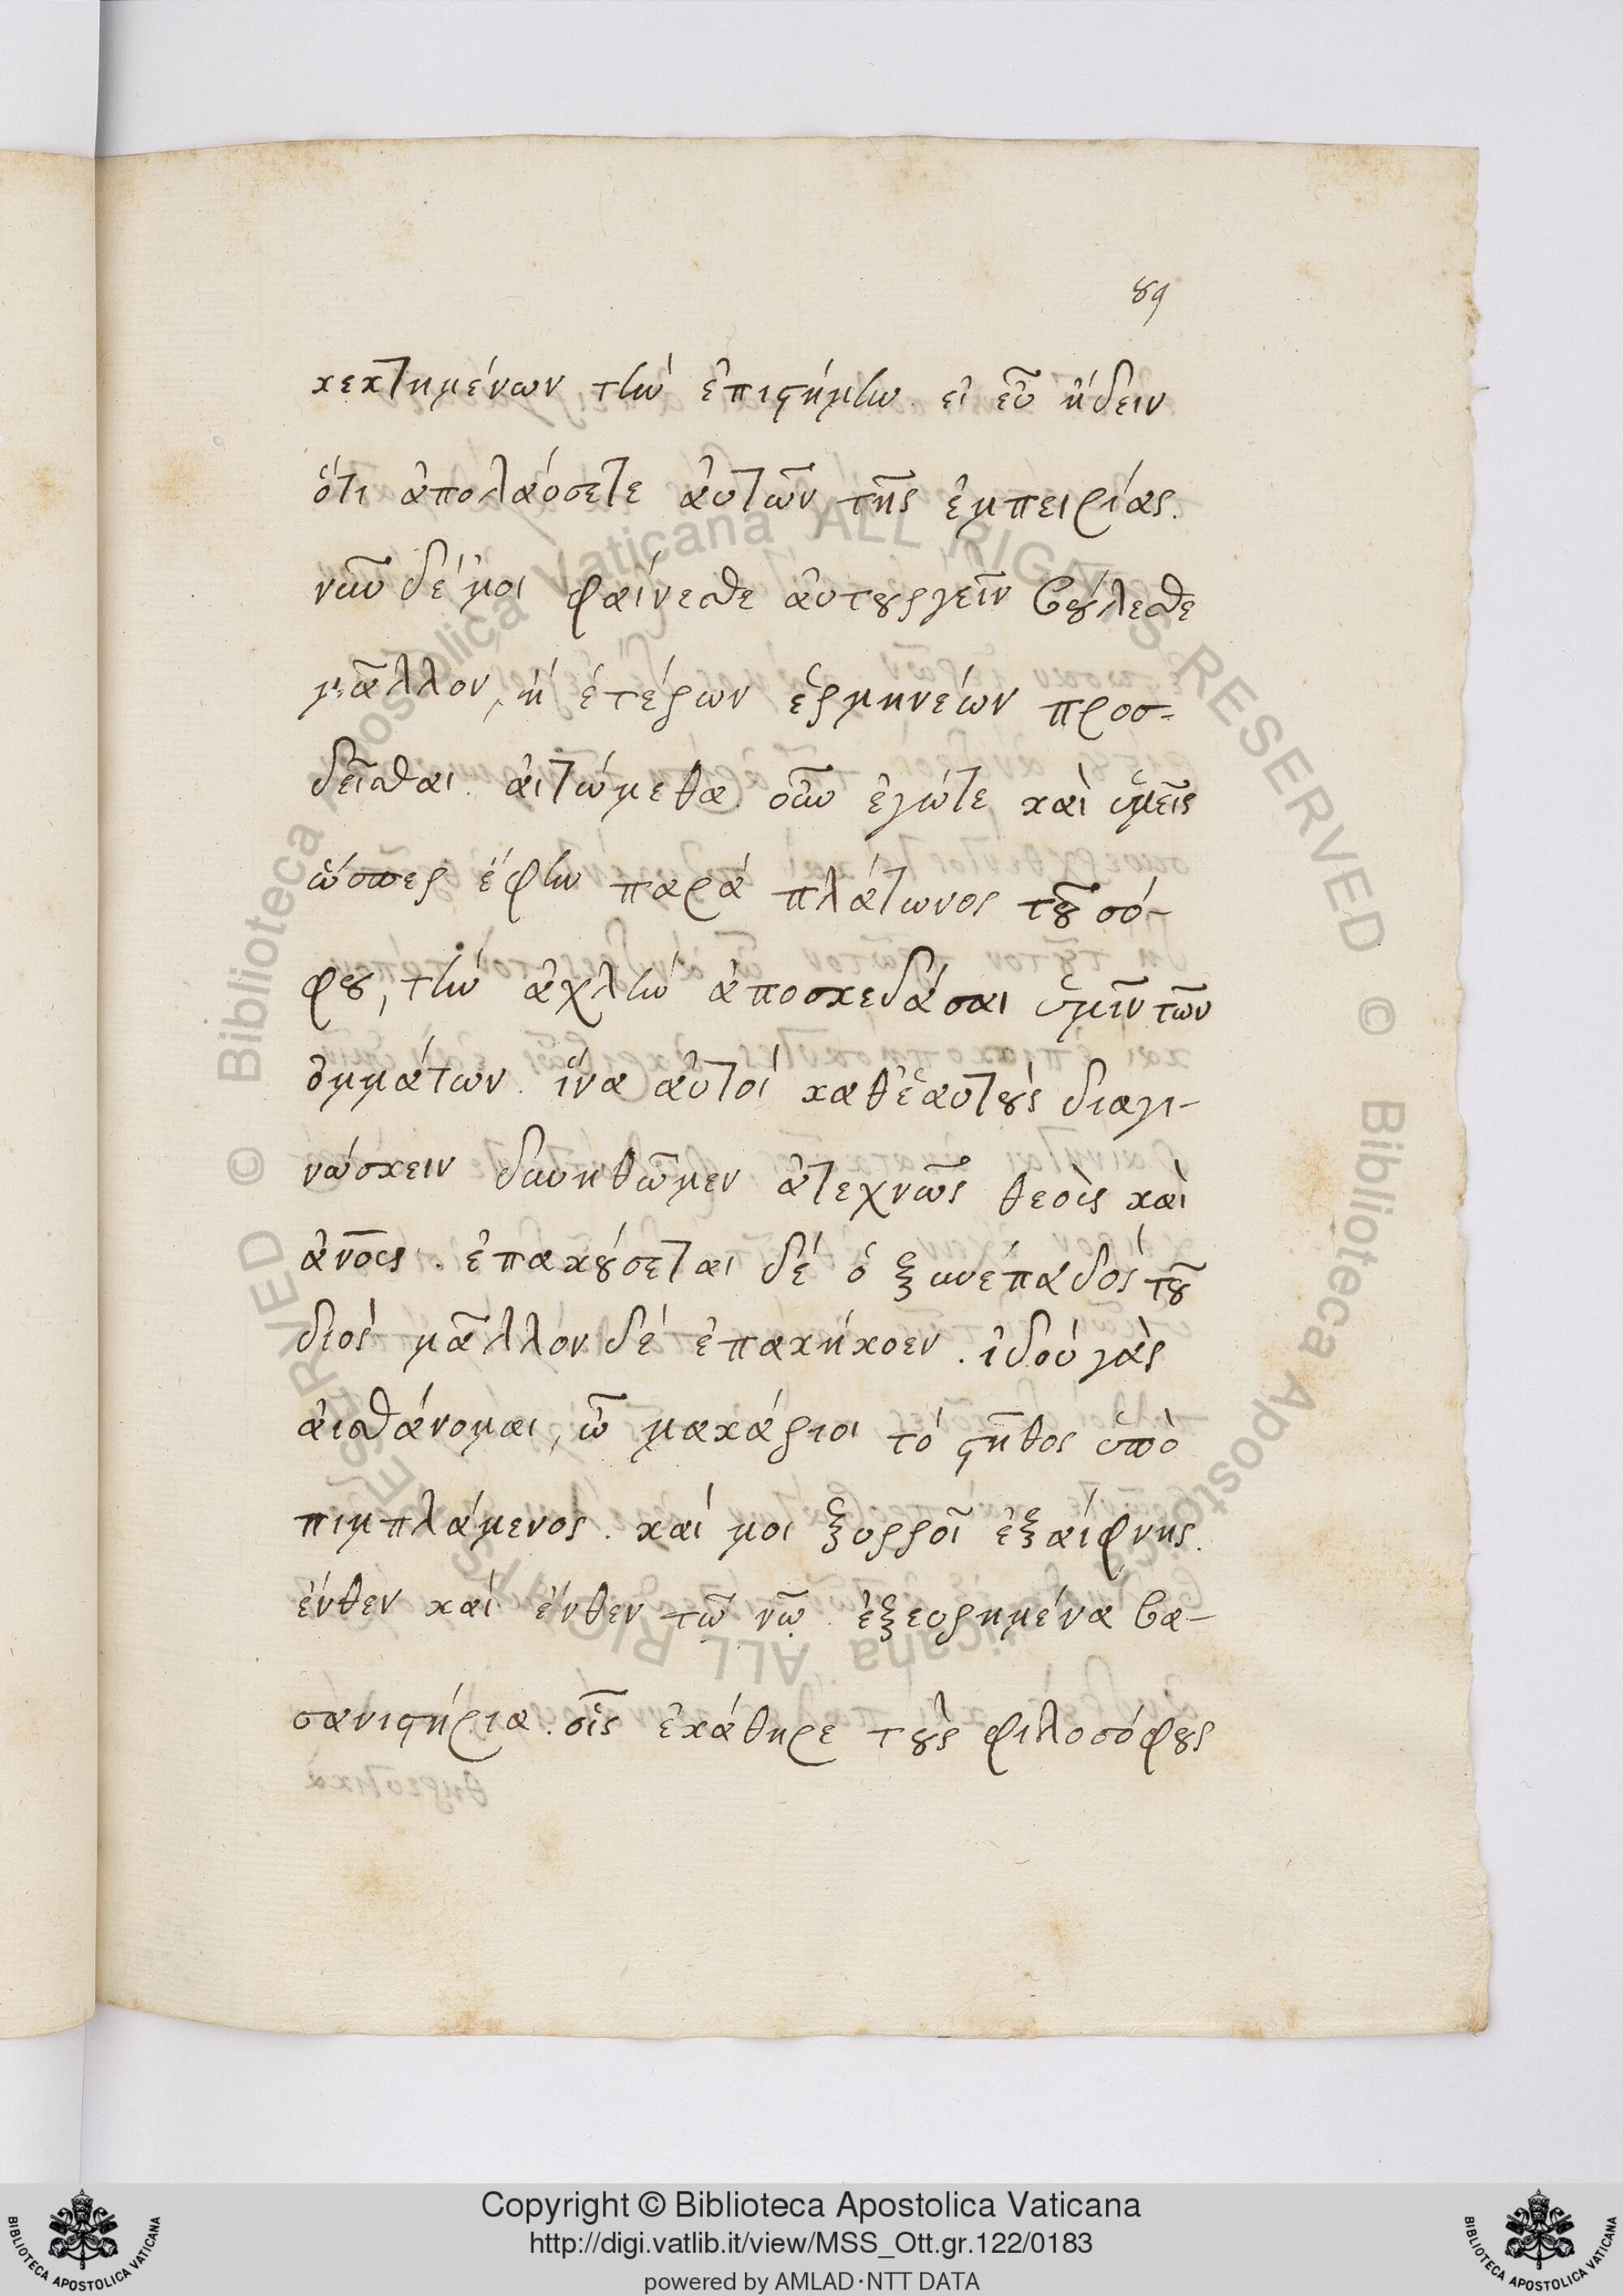 89
κεκτημένων τὴν ἐπιστήμην. εἰ εὖ ᾔδειν
ὅτι ἀπολαύσετε αὐτῶν τῆς ἐμπειρίας.
νῦν δέ μοι φαίνεσθε αὐτουργεῖν βούλεσθε
μᾶλλον, ἢ ἑτέρων ἑρμηνέων προσ-
δεῖσθαι. αἰτώμεθα οὖν ἐγώτε καὶ ὑμεῖς
ὥσπερ ἔφην παρὰ πλάτωνος τοῦ σό-
φου, τὴν ἀχλὺν ἀποσκεδάσαι ὑμῖν τῶν
ὀμμάτων. ἵνα αὐτοὶ καθ' ἑαυτοὺς διαγι-
νώσκειν δυνηθῶμεν ἀτεχνῶς θεοὶς καὶ
ἀνος. ἐπακούσεται δέ ὁ ξυνέπαδὸς τοῦ
διὸς μᾶλλον δέ ἐπακήκοεν. ἰδού γὰρ
αἰσθάνομαι, ὦ μακάριοι τό στῆθος ὑπὸ
πιμπλάμενος. καί μοι ξυρροῖ ἐξαίφνης.
ἔνθεν καί ἔνθεν τῶ νῷ. ἐξευρημένα βα-
σανιστήρια. οἷς ἐκάθηρε τοὺς φιλοσόφους
Copyright © Biblioteca Apostolica Vaticana
http://digi.vatlib.it/view/MSS_Ott.gr.122/0183
powered by AMLAD·NTT DATA
BIBLIOTECA APOSTOLICA VATICANA
BIBLIOTECA APOSTOLICA VATICANA
© Biblioteca Apostolica Vaticana ALL RIGHTS RESERVED
© Biblioteca Apostolica Vaticana ALL RIGHTS RESERVED